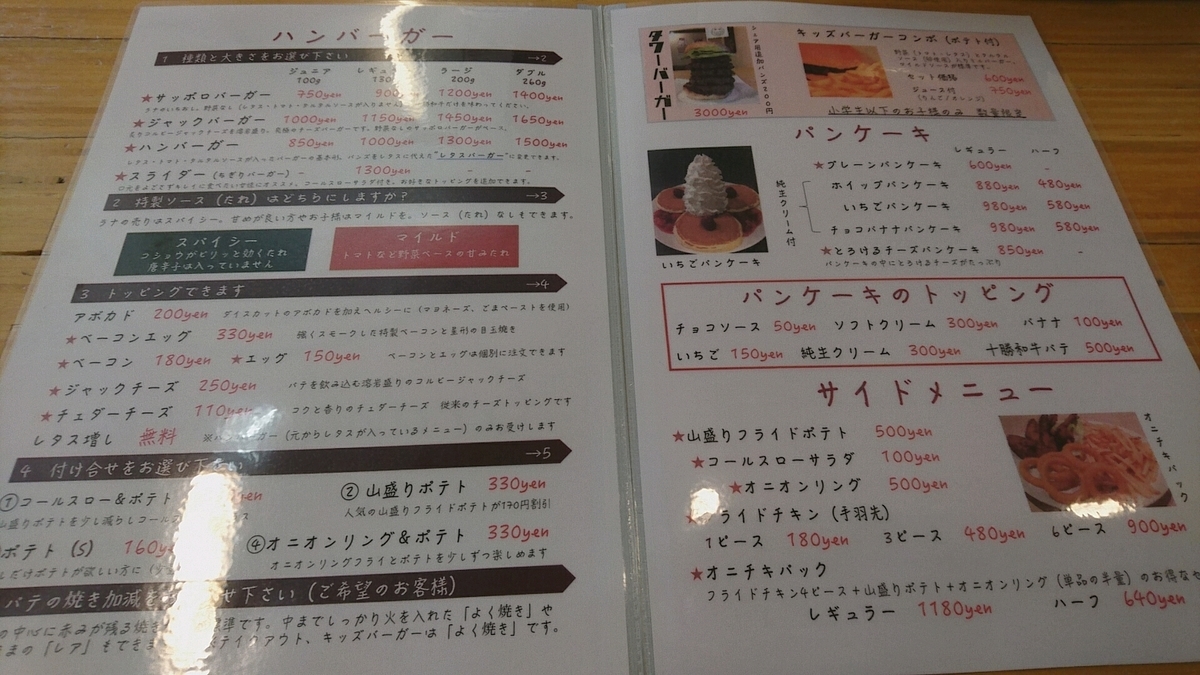 ハンバーガー
1 種類と大きさをお選び下さい →2
ジュニア 100g ラージ 200g ダブル 260g
★サッポロバーガー 750yen 1200yen 1400yen
★ジャックバーガー 1000yen 1150yen 1450yen 1650yen
★ハンバーガー 850yen 1000yen 1300yen 1500yen
レタス・トマト・タルタルソースが入ったバーガーの基本形。バンズをレタスに代えた"レタスバーガー"に変更できます。
★スライダー(ちぎりバーガー) - 1300yen - -
2 特製ソース(たれ)はどちらにしますか? →3
ラナの売りはスパイシー。甘めが良い方やお子様はマイルドを。ソース(たれ)なしもできます。
スパイシー
コショウがピリッと効くたれ
唐辛子は入っていません
マイルド
トマトなど野菜ベースの甘みたれ
3 トッピングできます →4
アボカド 200yen ダイスカットのアボカドを加えヘルシーに(マヨネーズ、ごまペーストを使用)
★ベーコンエッグ 330yen 強くスモークした特製ベーコンと星形の目玉焼き
★ベーコン 180yen ★エッグ 150yen ベーコンとエッグは個別に注文できます
★ジャックチーズ 250yen パテを飲み込む溶岩盛りのコルビージャックチーズ
★チェダーチーズ 110yen コクと香りのチェダーチーズ 従来のチーズトッピングです
レタス増し 無料 (元からレタスが入っているメニュー)のみお受けします
4 付け合せをお選び下さい →5
①コールスロー&ポテト
山盛りポテトを少し減らしコール
② 山盛りポテト 330yen
人気の山盛りフライドポテトが170円割引
ポテト(S) 160y
だけポテトが欲しい方に
④オニオンリング&ポテト 330yen
オニオンリングフライとポテトを少しずつ楽しめます
パテの焼き加減を せ下さい(ご希望のお客様)
の中心に赤みが残る焼き 準です。中までしっかり火を入れた「よく焼き」や
ままの「レア」もできま テイクアウト、キッズバーガーは「よく焼き」です。
タワーバーガー
3000yen
キッズバーガーコンボ(ポテト付)
セット価格 600yen
ジュース付 750yen
(りんご/オレンジ)
小学生以下のお子様のみ 数量限定
パンケーキ
レギュラー ハーフ
★プレーンパンケーキ 600yen -
ホイップパンケーキ 880yen 480yen
いちごパンケーキ 980yen 580yen
チョコバナナパンケーキ 980yen 580yen
純生クリーム付
★とろけるチーズパンケーキ 850yen -
パンケーキの中にとろけるチーズがたっぷり
いちごパンケーキ
パンケーキのトッピング
チョコソース 50yen ソフトクリーム 300yen バナナ 100yen
いちご 150yen 純生クリーム 300yen 十勝和牛パテ 500yen
サイドメニュー
★山盛りフライドポテト 500yen
★コールスローサラダ 100yen
★オニオンリング 500yen
フライドチキン(手羽先)
1ピース 180yen 3ピース 480yen 6ピース 900yen
★オニチキパック
フライドチキン4ピース+山盛りポテト+オニオンリング(単品の半量)のお得な
レギュラー 1180yen ハーフ 640yen
オニチキパック